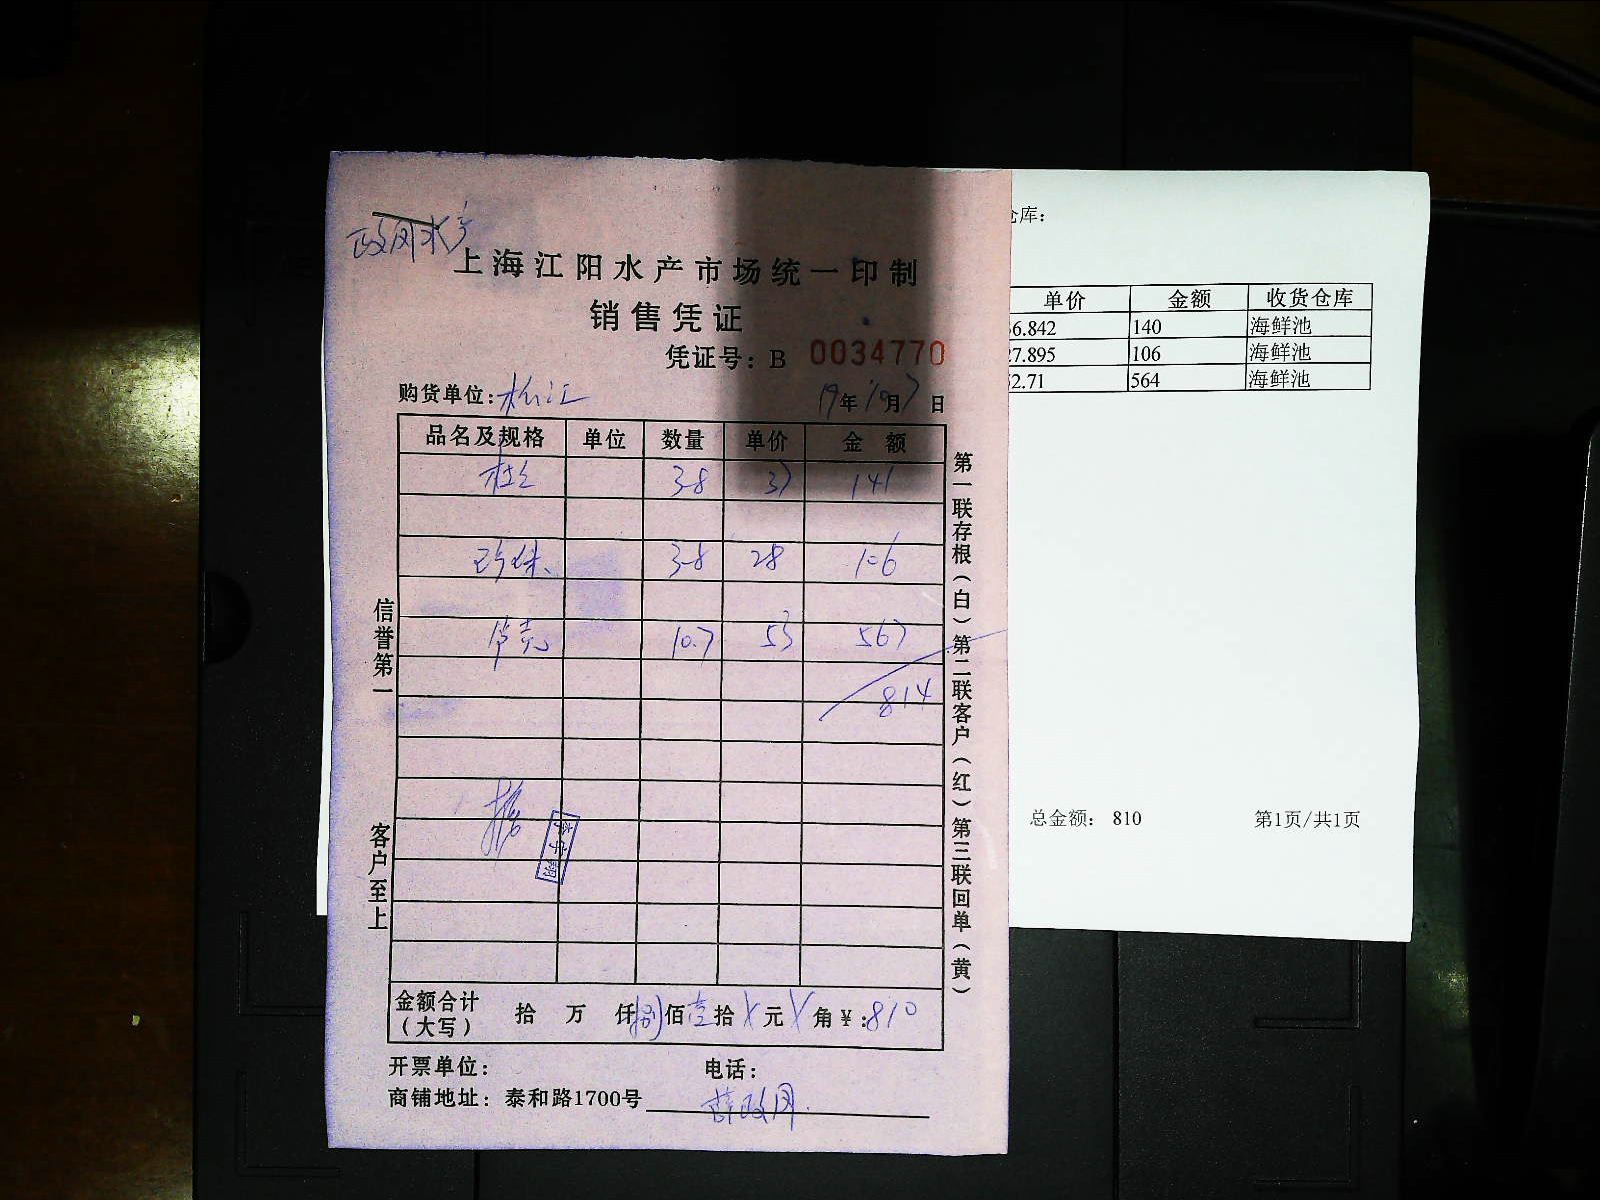 政网水产
上海江阳水产市场统一印制
销售凭证
凭证号：B 0034770
购货单位：松江 19年10月7日
品名及规格 单位 数量 单价 金额
3.8 37 141
珍珠 3.8 28 106
10.7 53 567
814
金额合计（大写） 拾 万 仟捌佰壹拾X元X角￥：810
开票单位： 电话：
商铺地址：泰和路1700号 薛政网
信誉第一
客户至上
第一联存根（白）第二联客户（红）第三联回单（黄）
仓库：
单价 金额 收货仓库
6.842 140 海鲜池
7.895 106 海鲜池
2.71 564 海鲜池
总金额： 810 第1页/共1页